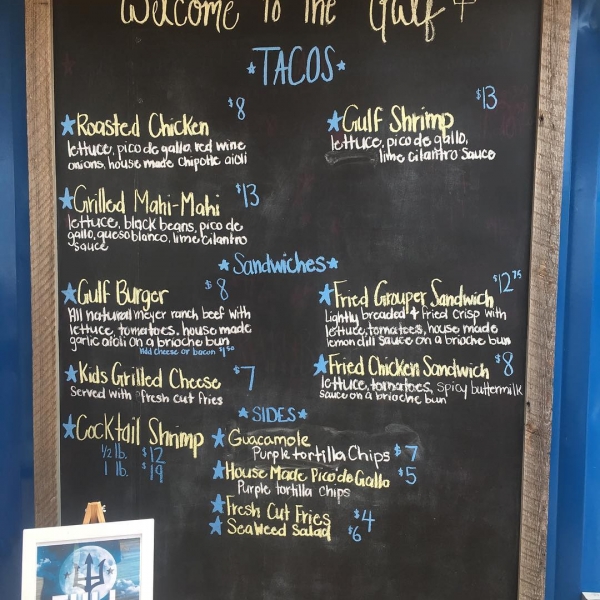 Welcome To The Gulf
TACOS
Roasted Chicken $8
lettuce, pico de gallo, red wine
onions, house made Chipotle aioli
Gulf Shrimp $13
lettuce, pico de gallo,
lime cilantro sauce
Grilled Mahi-Mahi $13
lettuce, black beans, pico de
gallo, queso blanco, lime cilantro
sauce
Sandwiches
Gulf Burger $8
All natural meyer ranch beef with
lettuce, tomatoes, house made
garlic aioli on a brioche bun
Add cheese or bacon $1.50
Fried Grouper Sandwich $12.75
Lightly breaded & fried crisp with
lettuce, tomatoes, house made
lemon dill sauce on a brioche bun
Kids Grilled Cheese $7
Served with fresh cut fries
Fried Chicken Sandwich $8
lettuce, tomatoes, spicy buttermilk
sauce on a brioche bun
Cocktail Shrimp
1/2 lb. $12
1 lb. $19
SIDES
Guacamole
Purple tortilla Chips $7
House Made Pico de Gallo $5
Purple tortilla chips
Fresh Cut Fries $4
Seaweed Salad $6